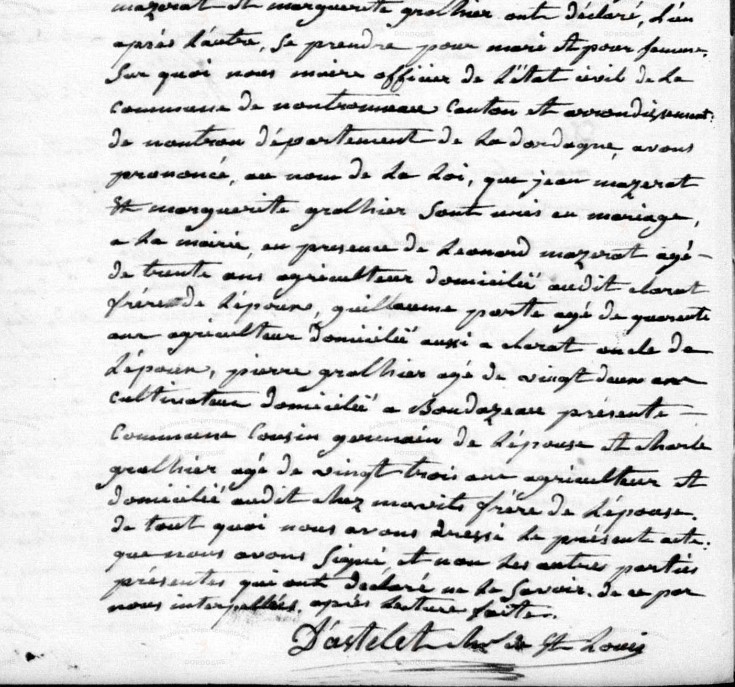 mazerat et marguerite gralhier ont déclaré, l'un
après l'autre, se prendre pour mari et pour femme,
Sur quoi nous maire officier de l'état civil de la
commune de nontronneau Canton et arrondissement
de nontron département de la dordogne, avons
prononcé, au nom de la loi, que jean mazerat
Et marguerite gralhier Sont unis en mariage,
a la mairie, en presence de Leonard mazerat agé
de trente ans agriculteur domicilié audit clarat
frère de l'époux, guillaume porte agé de quarante
ans agriculteur domicilié aussi a clarat oncle de
l'époux, pierre gralhier agé de vingt deux ans
Cultivateur domicilié a Boudazeau présente
Commune Cousin germain de l'épouse et charle
gralhier agé de vingt trois ans agriculteur et
domicilié audit chez frère de l'épouse
de tout quoi nous avons dressé le présente acte
que nous avons Signé, et non les autres parties
présentes qui ont déclaré ne le Savoir de ce par
nous interpellées, après lecture faite.
D'astelet de St Louis